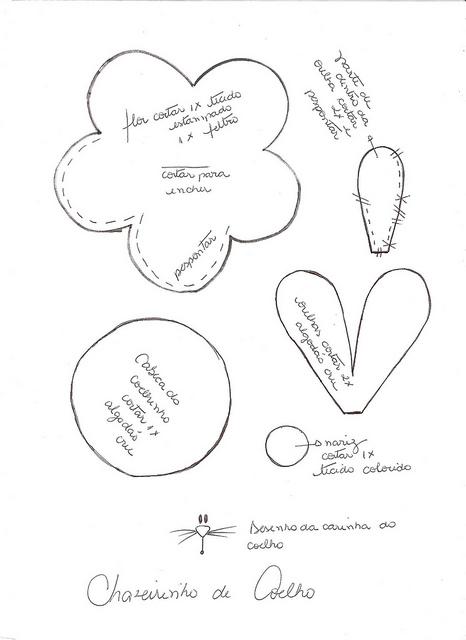 flor cortar 1x tecido
estampado
1x feltro
cortar para
encher
pespontar
parte de
dentro da
orelha cortar
2x e
pespontar
orelhas cortar 2x
algodão cru
Cabeça do
coelhinho
cortar 1x
algodão
cru
nariz
cortar 1x
tecido colorido
Desenho da carinha do
coelho
Chaveirinho de Coelho